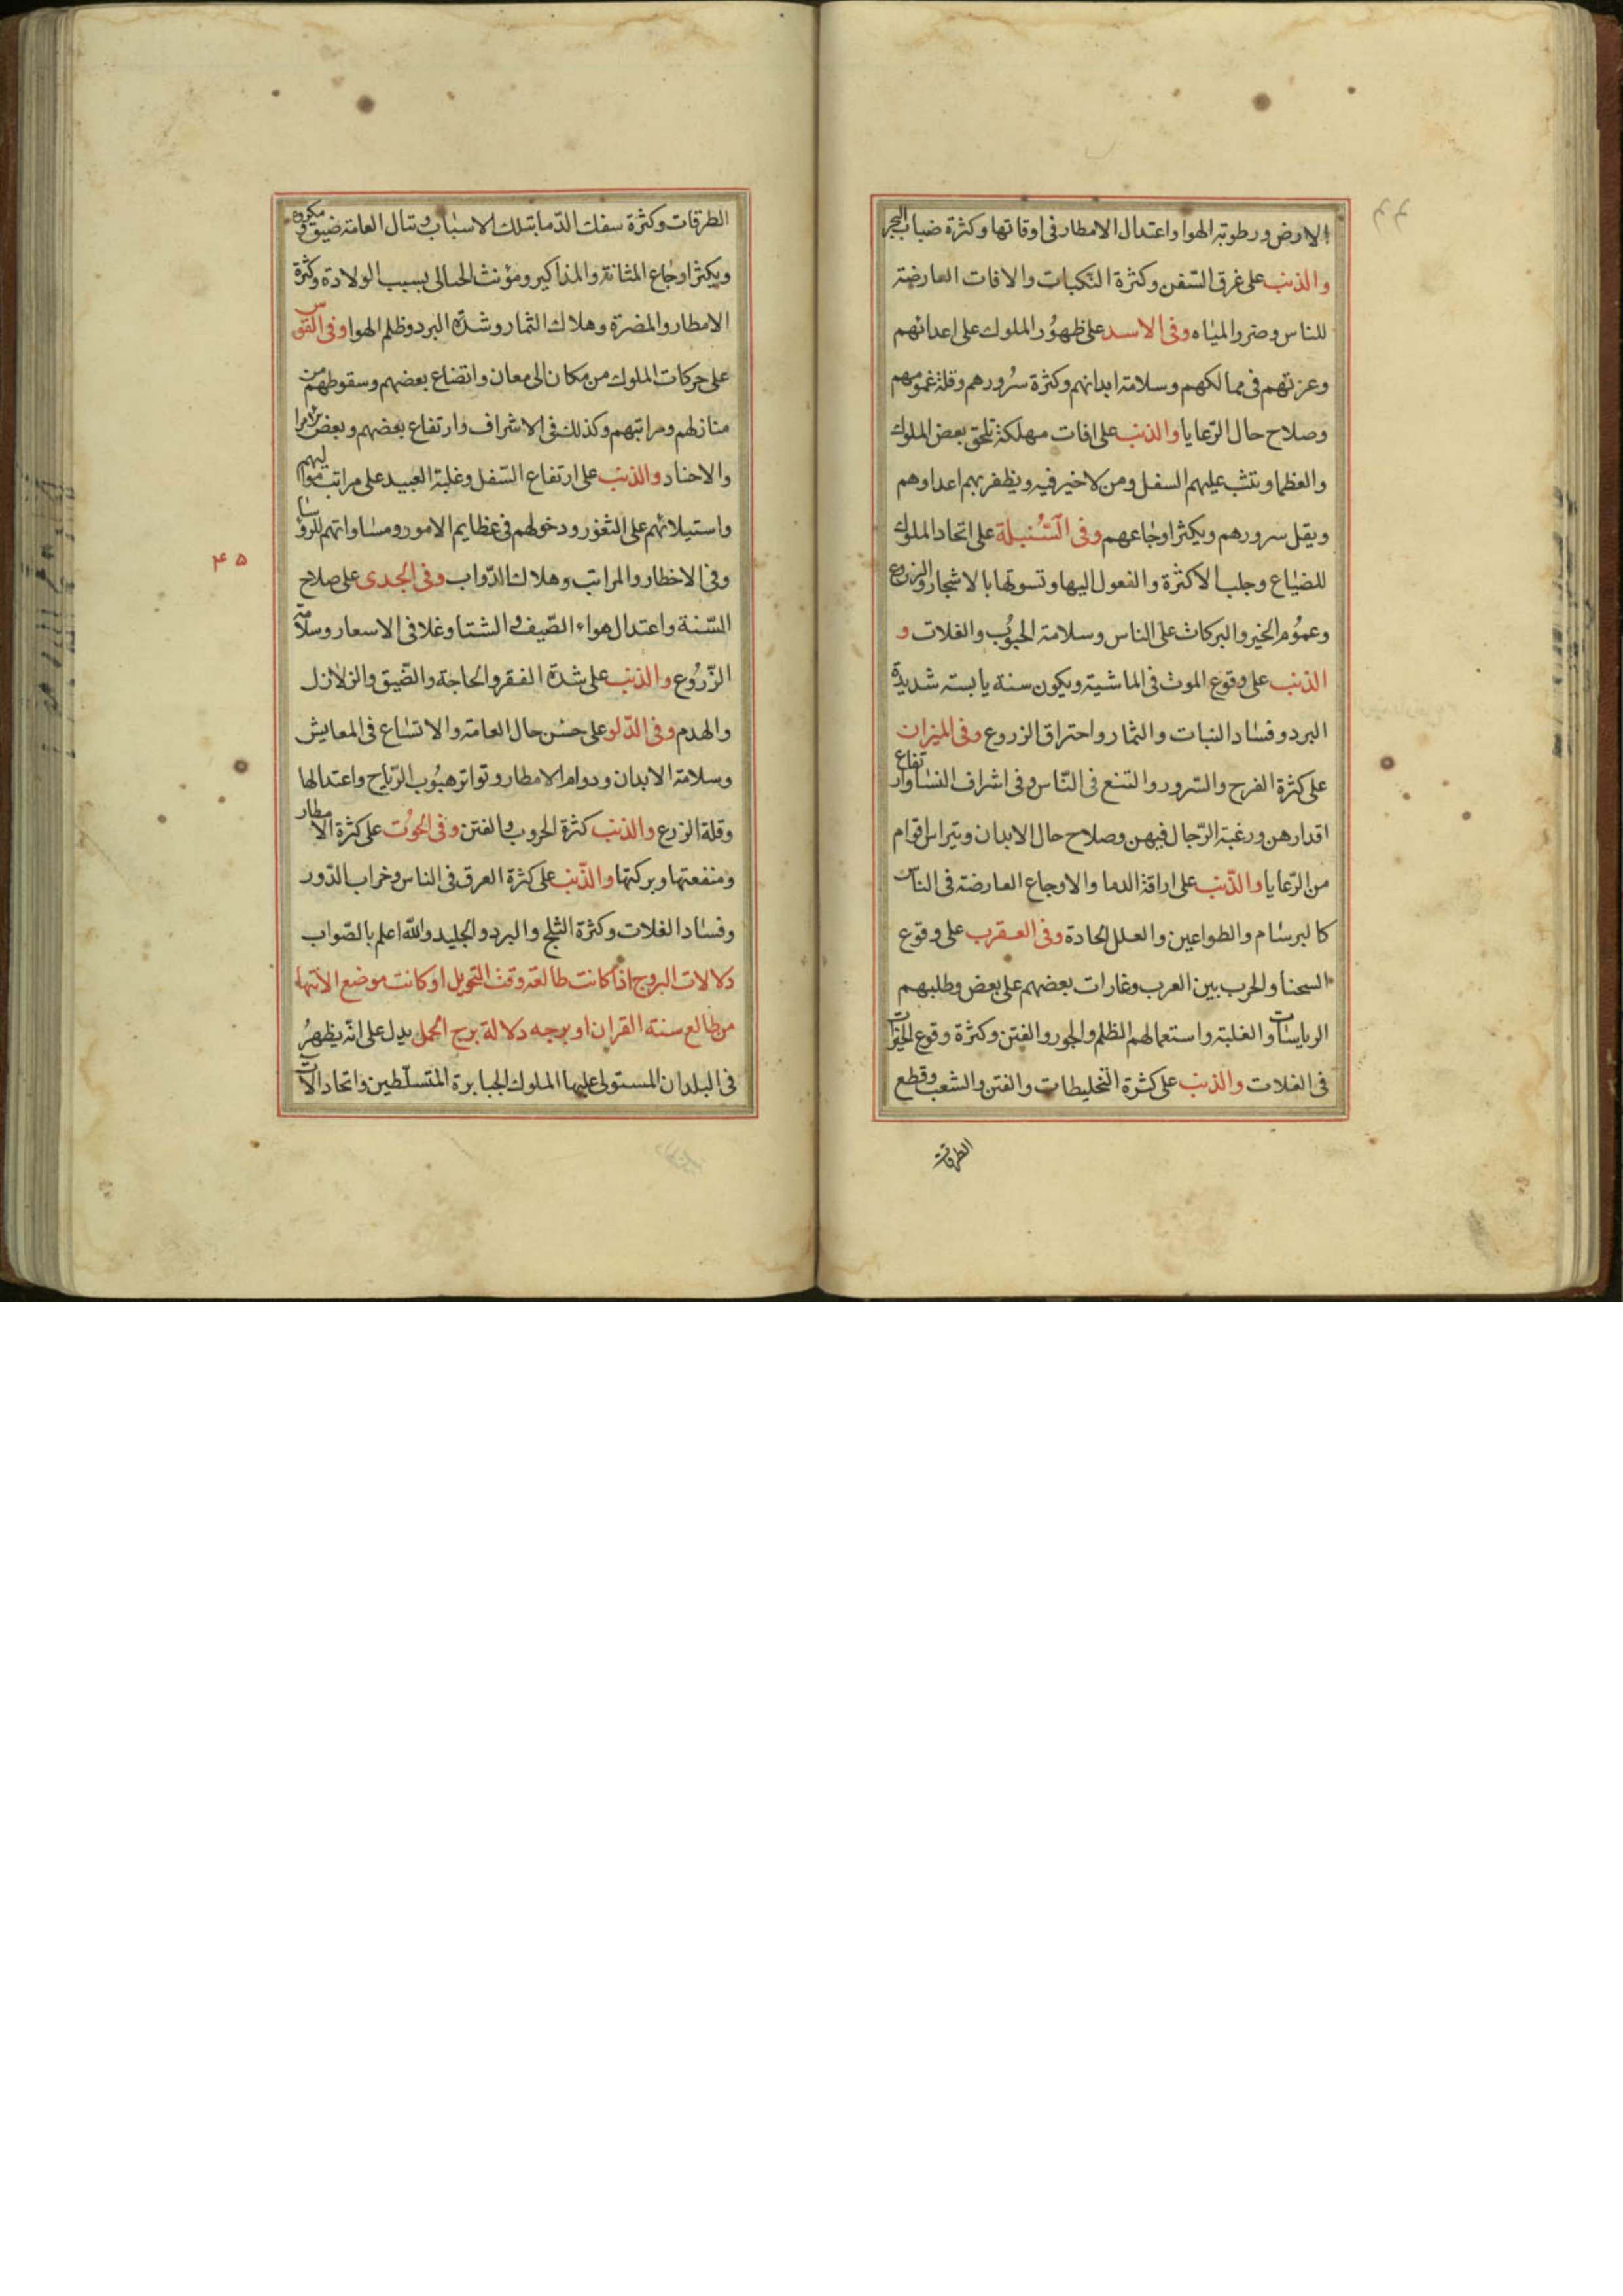 الارض ورطوبة الهوا واعتدال الامطار فى اوقاتها وكثرة ضباب البحر
والذنب على غرق السّفن وكثرة النّكبات والافات العارضة
للناس وضر والمياه وفى الاسد على ظهور الملوك على اعدائهم
وعزتهم فى ممالكهم وسلامة ابدانهم وكثرة سرورهم وقلة غمومهم
وصلاح حال الرّعايا والذنب على افات مهلكة تلحق بعض الملوك
والعظما وتثب عليهم السفل ومن لاخير فيه ويظفر بهم اعداوهم
ويقل سرورهم ويكثر اوجاعهم وفى السّنبلة على اتحاد الملوك
للضياع وجلب الاكثرة والفعول اليها وتسوتها بالاشجار والزروع
وعموم الخير والبركات على الناس وسلامة الحبوب والغلات و
الذنب على وقوع الموت فى الماشية ويكون سنة يابسة شديدة
البرد وفساد النبات والثمار واحتراق الزروع وفى الميزان
على كثرة الفرح والسّرور والتنع فى النّاس وفى اشراف النسا وارتفاع
اقدارهن ورغبة الرّجال فيهن وصلاح حال الابدان ويتراس اقوام
من الرّعايا والذّنب على اراقة الدما والاوجاع العارضة فى الناس
كالبرسام والطواعين والعلل الحادة وفى العقرب على وقوع
السحنا والحرب بين العرب وغارات بعضهم على بعض وطلبهم
الرياسات والغلبة واستعمالهم الظلم والجور والفتن وكثرة وقوع
فى الغلات والذنب على كثرة التخليطات والفتن والشعب وقطع
الطرقات
الطرقات وكثرة سفك الدّما بتلك الاسباب وتنال العامة ضيق ومكروه
ويكثر اوجاع المثانة والمذاكير ومؤنث الحبالى بسبب الولادة وكثرة
الامطار والمضرة وهلاك الثمار وشدّة البرد وظلم الهوا وفى القوس
على حركات الملوك من مكان الى معان واتضاع بعضهم وسقوطهم من
منازلهم ومراتبهم وكذلك فى الاشراف وارتفاع بعضهم وبعض
والاحناد والذنب على ارتفاع السّفل وغلبة العبيد على مراتب مواليهم
واستيلائهم على الثغور ودخولهم فى عظايم الامور ومساواتهم للروسا
۴۵
وفى الاخطار والمراتب وهلاك الدّواب وفى الجدى على صلاح
السّنة واعتدال هواء الصّيف فى الشتا وغلا فى الاسعار وسلامة
الزّروع والذنب على شدة الفقر والحاجة والضّيق والزلازل
والهدم وفى الدّلو على حسن حال العامة والاتساع فى المعايش
وسلامة الابدان ودوام الامطار وتواتر هبوب الرّياح واعتدالها
وقلة الزرع والذنب كثرة الحروب والفتن وفى الحوت على كثرة الامطار
ومنفعتها وبركتها والذّنب على كثرة العرق فى الناس وخراب الدّور
وفساد الغلات وكثرة الثلج والبرد والجليد والله اعلم بالصّواب
دلالات البروج اذا كانت طالعة وقت التحويل او كانت موضع الانتها
من طالع سنة القران او برجه دلالة برج الحمل يدل على انّه يظهر
فى البلدان المستولى عليها الملوك الجبابرة المتسلّطين واتحاد الآت